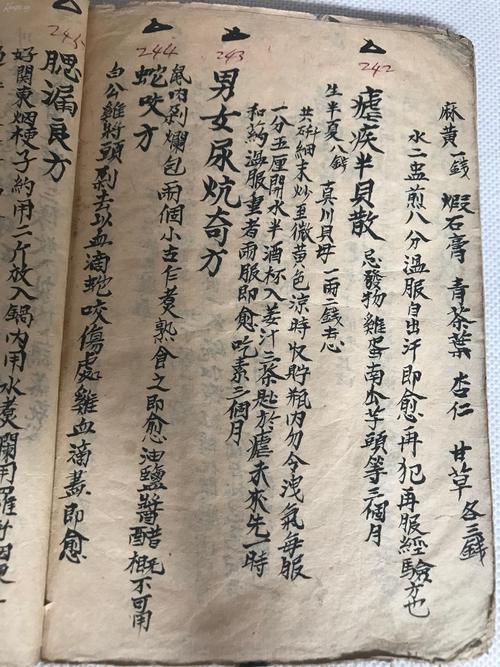 麻黄一錢 煆石膏 青茶葉 杏仁 甘草 各三錢
水二盅煎八分溫服自出汗即愈再犯再服經驗方也
242
瘧疾半貝散 忌發物雞蛋南瓜芋頭等三個月
生半夏八錢 真川貝母一兩二錢去心
共研細末炒至微黄色凉時收貯瓶内勿令洩氣每服
一分五厘開水半酒杯入姜汁三茶匙於瘧未來先一時
和药溫服重者兩服即愈吃素三個月
243
男女尿炕奇方
鼠肉剁爛包兩個小古乍煮熟食之即愈油鹽醬醋概不可用
244
蛇咬方
白公雞將頭剁去以血滴蛇咬傷處雞血滴盡即愈
245
腮漏良方
好関東烟梗子約用二斤放入鍋内用水煮爛用羅